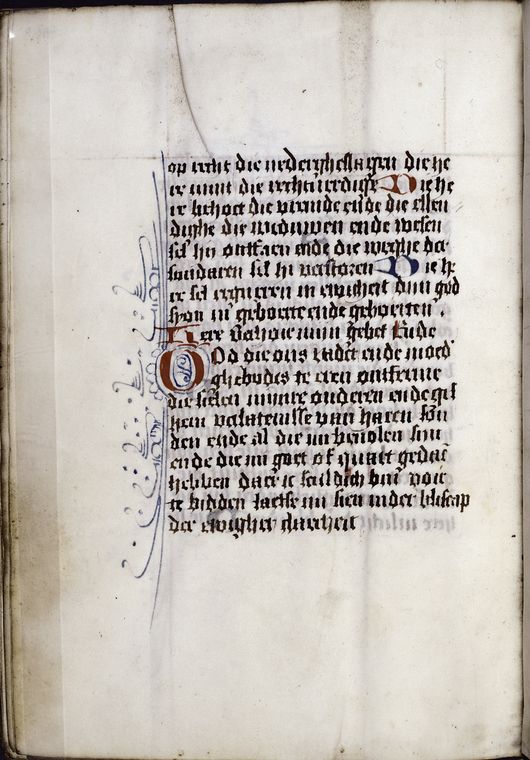 op recht die nederghesslagen die he
re mint die rechtuerdighe Die he
re behoet die vremde ende die ellen
dighe die weduwen ende wesen
sel hi ontfaen ende die weghe der
sondaren sel hi verstoren Die he
re sel regneren in ewicheit dijn god
syon in geboerte ende geboerten .
Here verhoir mijn gebet Ende
God die ons vader ende moed
ghebodes te eren ontferme
die sielen mijnre ouderen ende gif
hem verlatenisse van haren son
den ende al die mi beuolen sijn
ende die mi goet of quaet gedaen
hebben daer ic sculdich bin voir
te bidden laetse mi sien in der bliscap
der ewigher claerheit